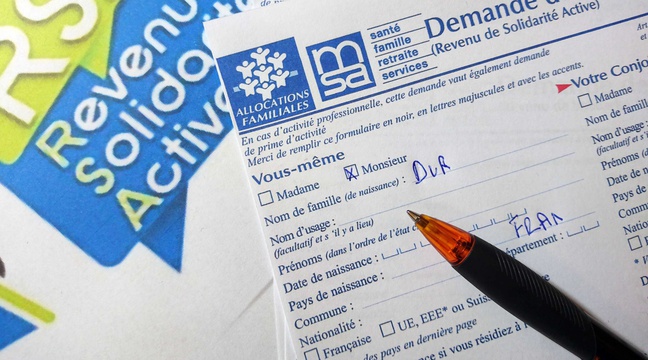 RS
Revenu
Solida
Active
ALLOCATIONS
FAMILIALES
msa
santé
famille
retraite
services
Demande d
(Revenu de Solidarité Active)
En cas d'activité professionnelle, cette demande vaut également demande
de prime d'activité
Merci de remplir ce formulaire en noir, en lettres majuscules et avec les accents.
Vous-même
Madame Monsieur
Nom de famille (de naissance) : DUR
Nom d'usage :
(facultatif et s'il y a lieu)
Prénoms (dans l'ordre de l'état c
Date de naissance :
Pays de naissance : FRAN
Commune : département :
Nationalité :
Française UE, EEE* ou Suiss
des pays en dernière page
ce si vous résidiez à l
Votre Conjo
Madame
Nom de famill
Nom d'usage :
(facultatif et s'il y
Prénoms (d
Date de n
Pays de
Comm
Natio
Fr